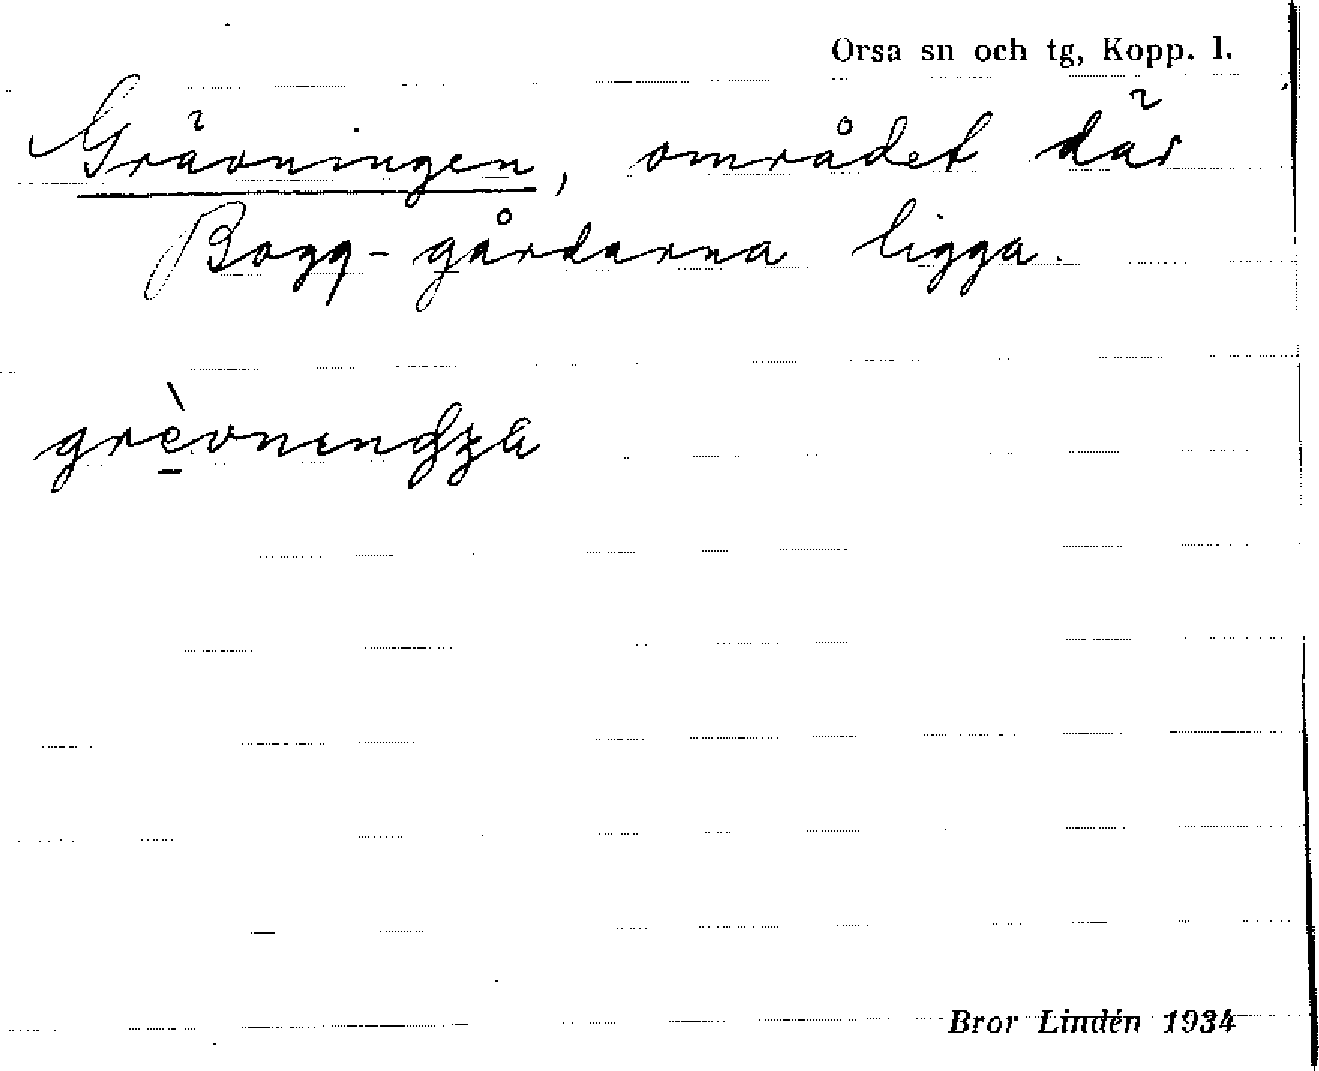 Orsa sn och tg, Kopp. l.
Grävningen, området där
Bogg-gårdarna ligga.
Bror Lindén 1934